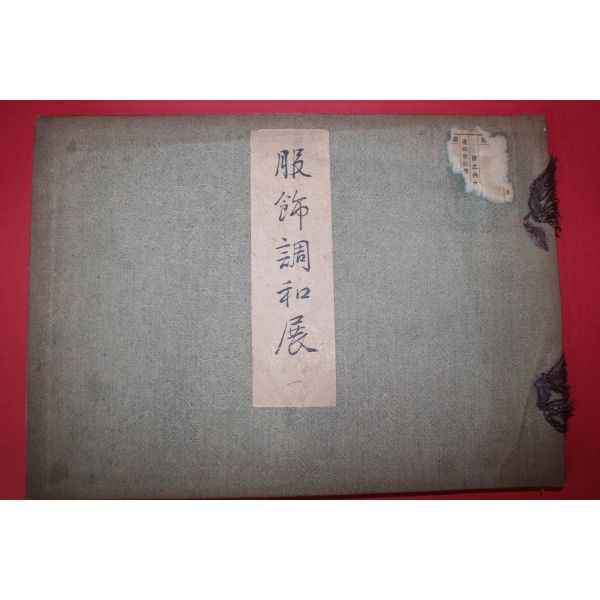 服飾調和展
一